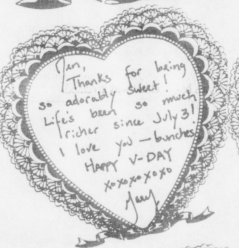 Jen,
Thanks for being
so adorably sweet!
Life's been so much
richer since July 3!
I love you — bunches
HAPPY V-DAY
xoxoxoxoxo